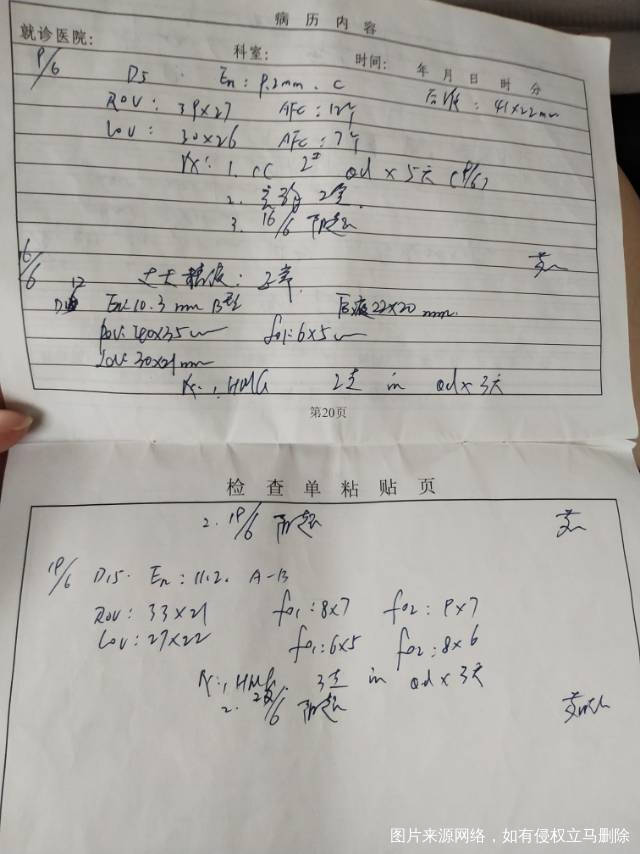 病历内容
就诊医院: 科室: 时间: 年 月 日 时 分
9/6 D5 En: 9.2mm. C 41×22mm
ROV: 39×27 AFC: 12个
LOV: 30×26 AFC: 7个
Rx: 1. CC 2# qd × 5天 (9/6)
2. 2盒.
3. 16/6 阴超
16/6 丈夫精液: 正常.
D12 En: 10.3 mm B型 22×20 mm.
ROV: 40×35 mm fo1: 6×5 mm
LOV: 30×21 mm
Rx: 1. HMG 2支 im qd × 3天
第20页
检查单粘贴页
2. 19/6 阴超
19/6 D15. En: 11.2. A-B
ROV: 33×21 fo1: 8×7 fo2: 9×7
LOV: 27×22 fo1: 6×5 fo2: 8×6
Rx: 1. HMG 3支 im qd × 3天
2. 22/6 阴超
图片来源网络，如有侵权立马删除